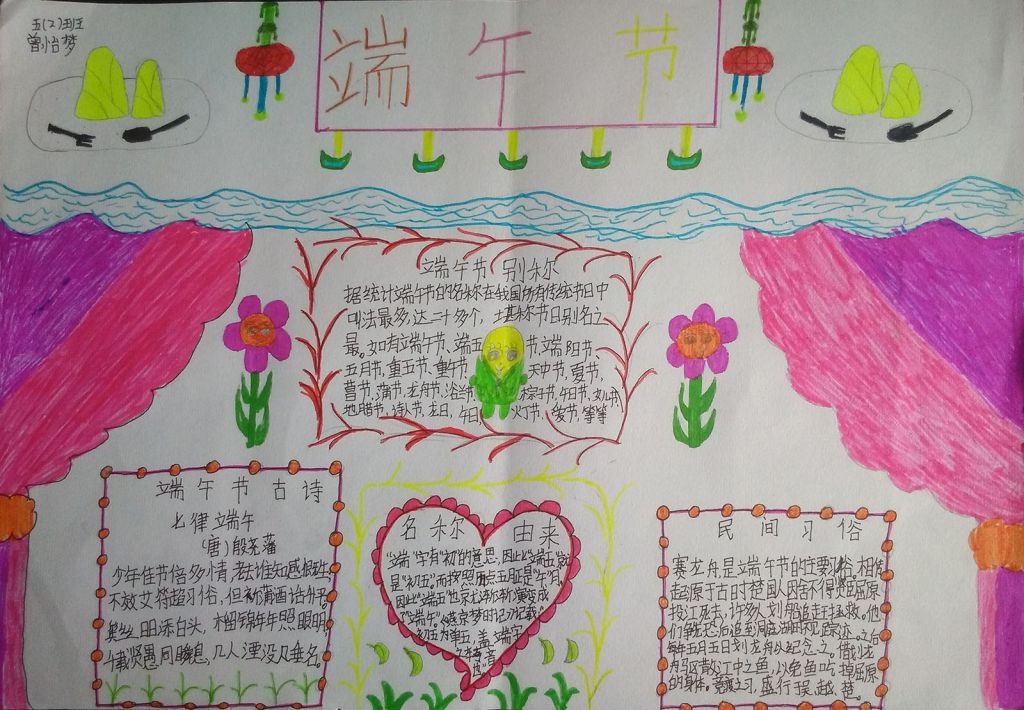 五(2)班
曾怡梦
端午节
端午节别称
据统计端午节的名称在我国所有传统节日中
叫法最多,达二十多个,堪称节日别名之
最。如有端午节、端五节,端阳节、
五月节,重五节、重午节天中节,夏节,
菖节,蒲节,龙舟节,浴兰节粽子节,午日节,女儿节,
地腊节,诗人节,龙日,午日,灯节,等等
端午节古诗
七律端午
(唐)殷尧藩
少年佳节倍多情,老去谁知感慨生,
不效艾符趋习俗,但祈蒲酒话升平。
鬓丝日日添白头,榴锦年年照眼明,
千载贤愚同瞬息,几人湮没几垂名。
名称由来
"端"字有"初"的意思,因此"端五"就
是"初五"而按照历法五月正是"午"月,
因此"端五"也就渐渐演变成
了"端午"。燕京梦时记》记载:
初五为单五,盖端字
之音
民间习俗
赛龙舟,是端午节的主要习俗,相传
起源于古时楚国人因舍不得贤臣屈原
投江死去,许多人划船追赶拯救。他
们争先恐后追至洞庭湖时不见踪迹。之后
每年五月五日划龙舟以纪念之,借划龙
舟驱散江中之鱼,以免鱼吃掉屈原
的身体。竞渡之习,盛行于吴、越、楚。